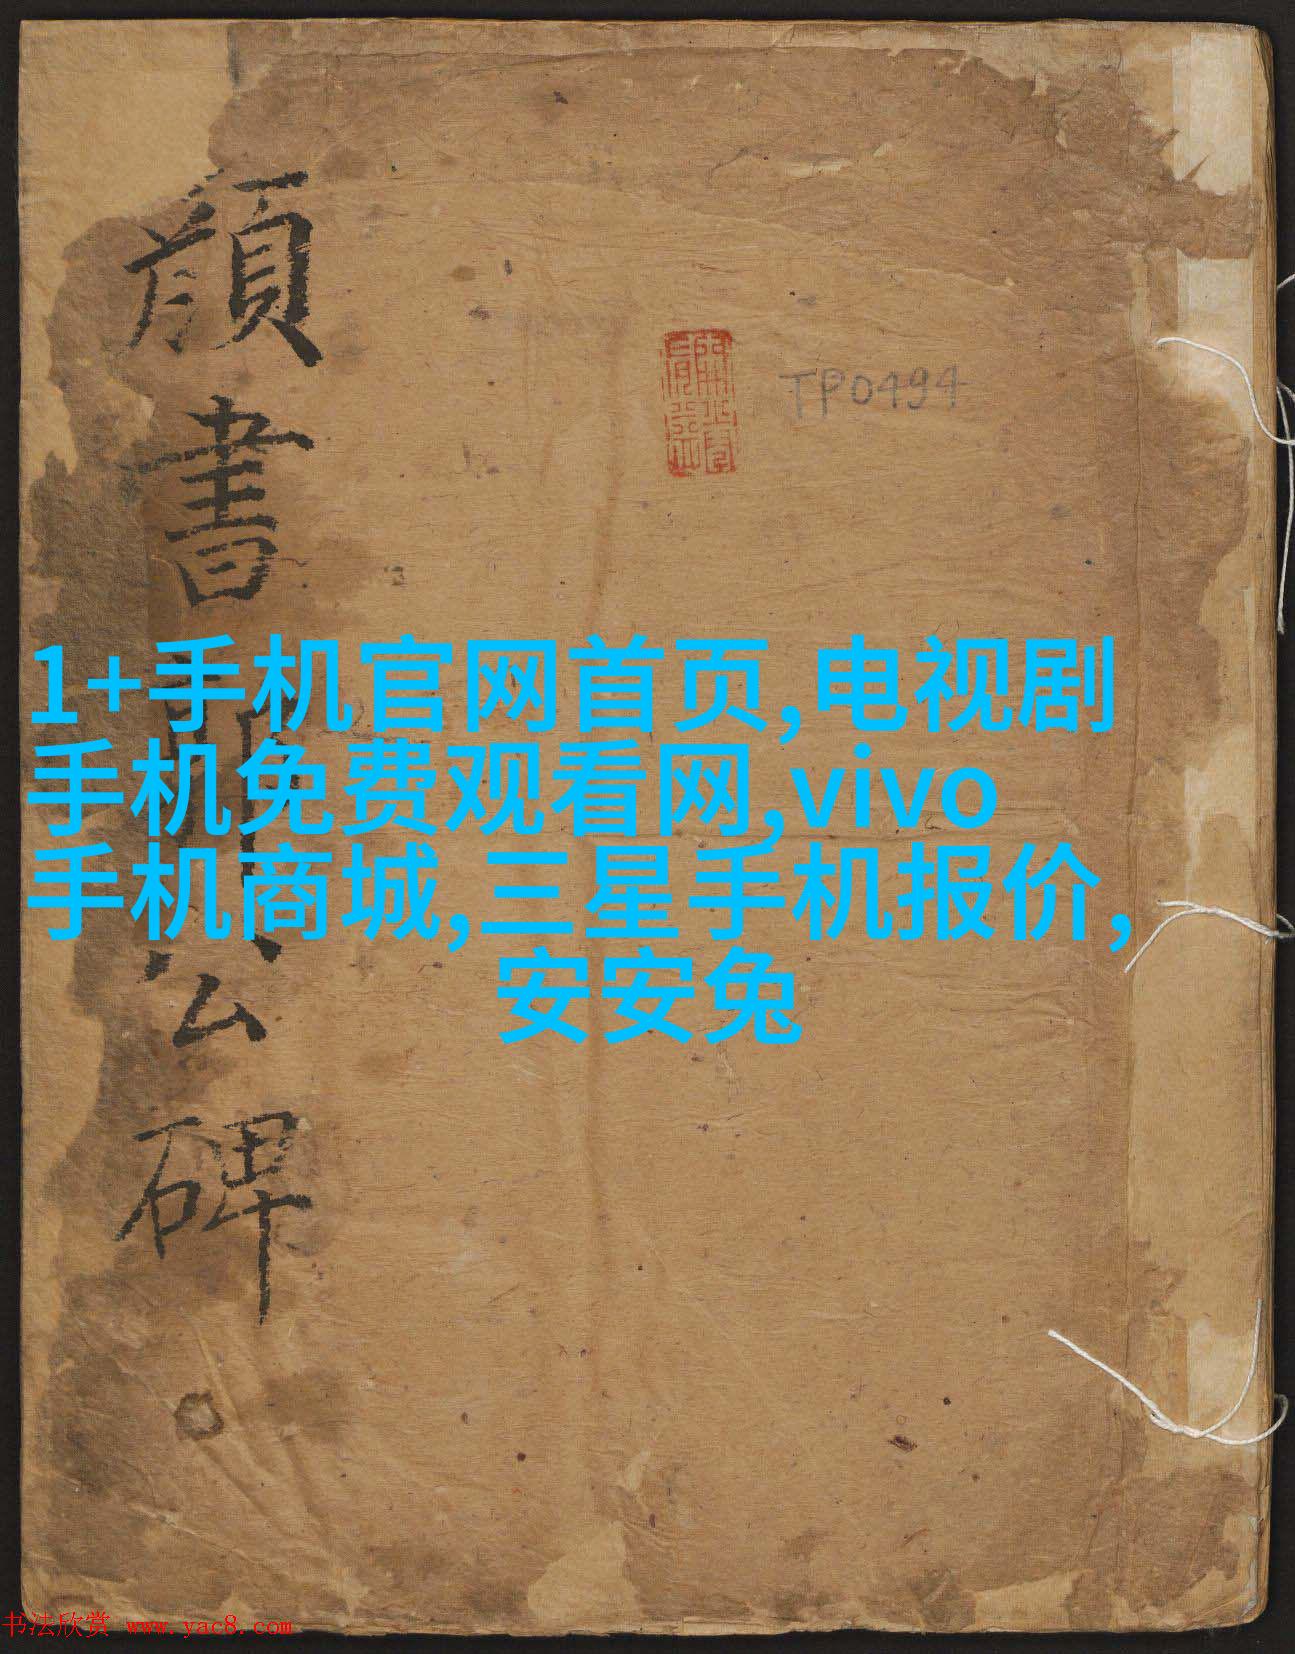 顔書
郭公碑
TP0494
1+手机官网首页,电视剧
手机免费观看网,vivo
手机商城,三星手机报价,
安安兔
书法欣赏 www.yac8.com